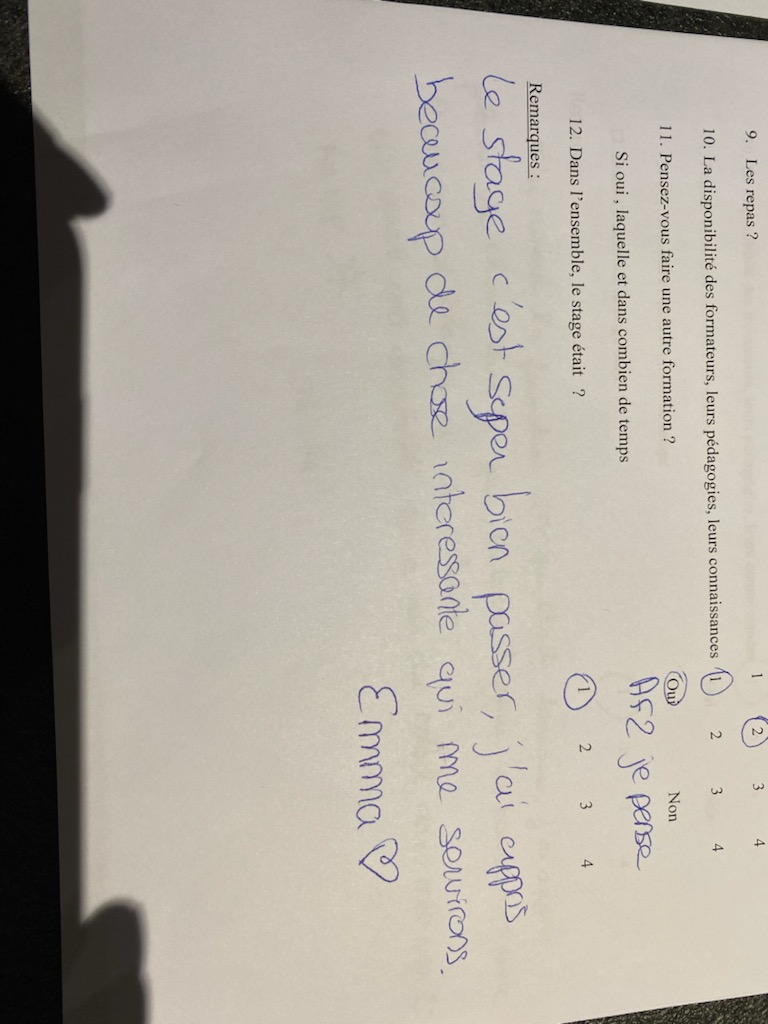 9. Les repas ? 1 2 3 4
10. La disponibilité des formateurs, leurs pédagogies, leurs connaissances 1 2 3 4
11. Pensez-vous faire une autre formation ? Oui Non
Si oui , laquelle et dans combien de temps AF2 je pense
12. Dans l'ensemble, le stage était ? 1 2 3 4
Remarques :
Le stage c'est super bien passer, j'ai appris
beaucoup de chose interessante qui me servirons.
Emma ♡